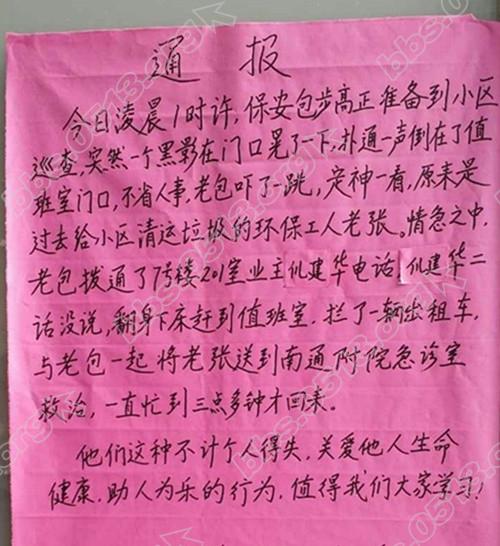 通报
今日凌晨1时许，保安包步高正准备到小区
巡查，突然一个黑影在门口晃了一下，扑通一声倒在了值
班室门口，不省人事，老包吓了一跳，定神一看，原来是
过去给小区清运垃圾的环保工人老张。情急之中，
老包拨通了7号楼201室业主仇建华电话，仇建华二
话没说，翻身下床赶到值班室，拦了一辆出租车，
与老包一起将老张送到南通附院急诊室
救治，一直忙到三点多钟才回来。
他们这种不计个人得失，关爱他人生命
健康，助人为乐的行为，值得我们大家学习！
bbs.0513.org